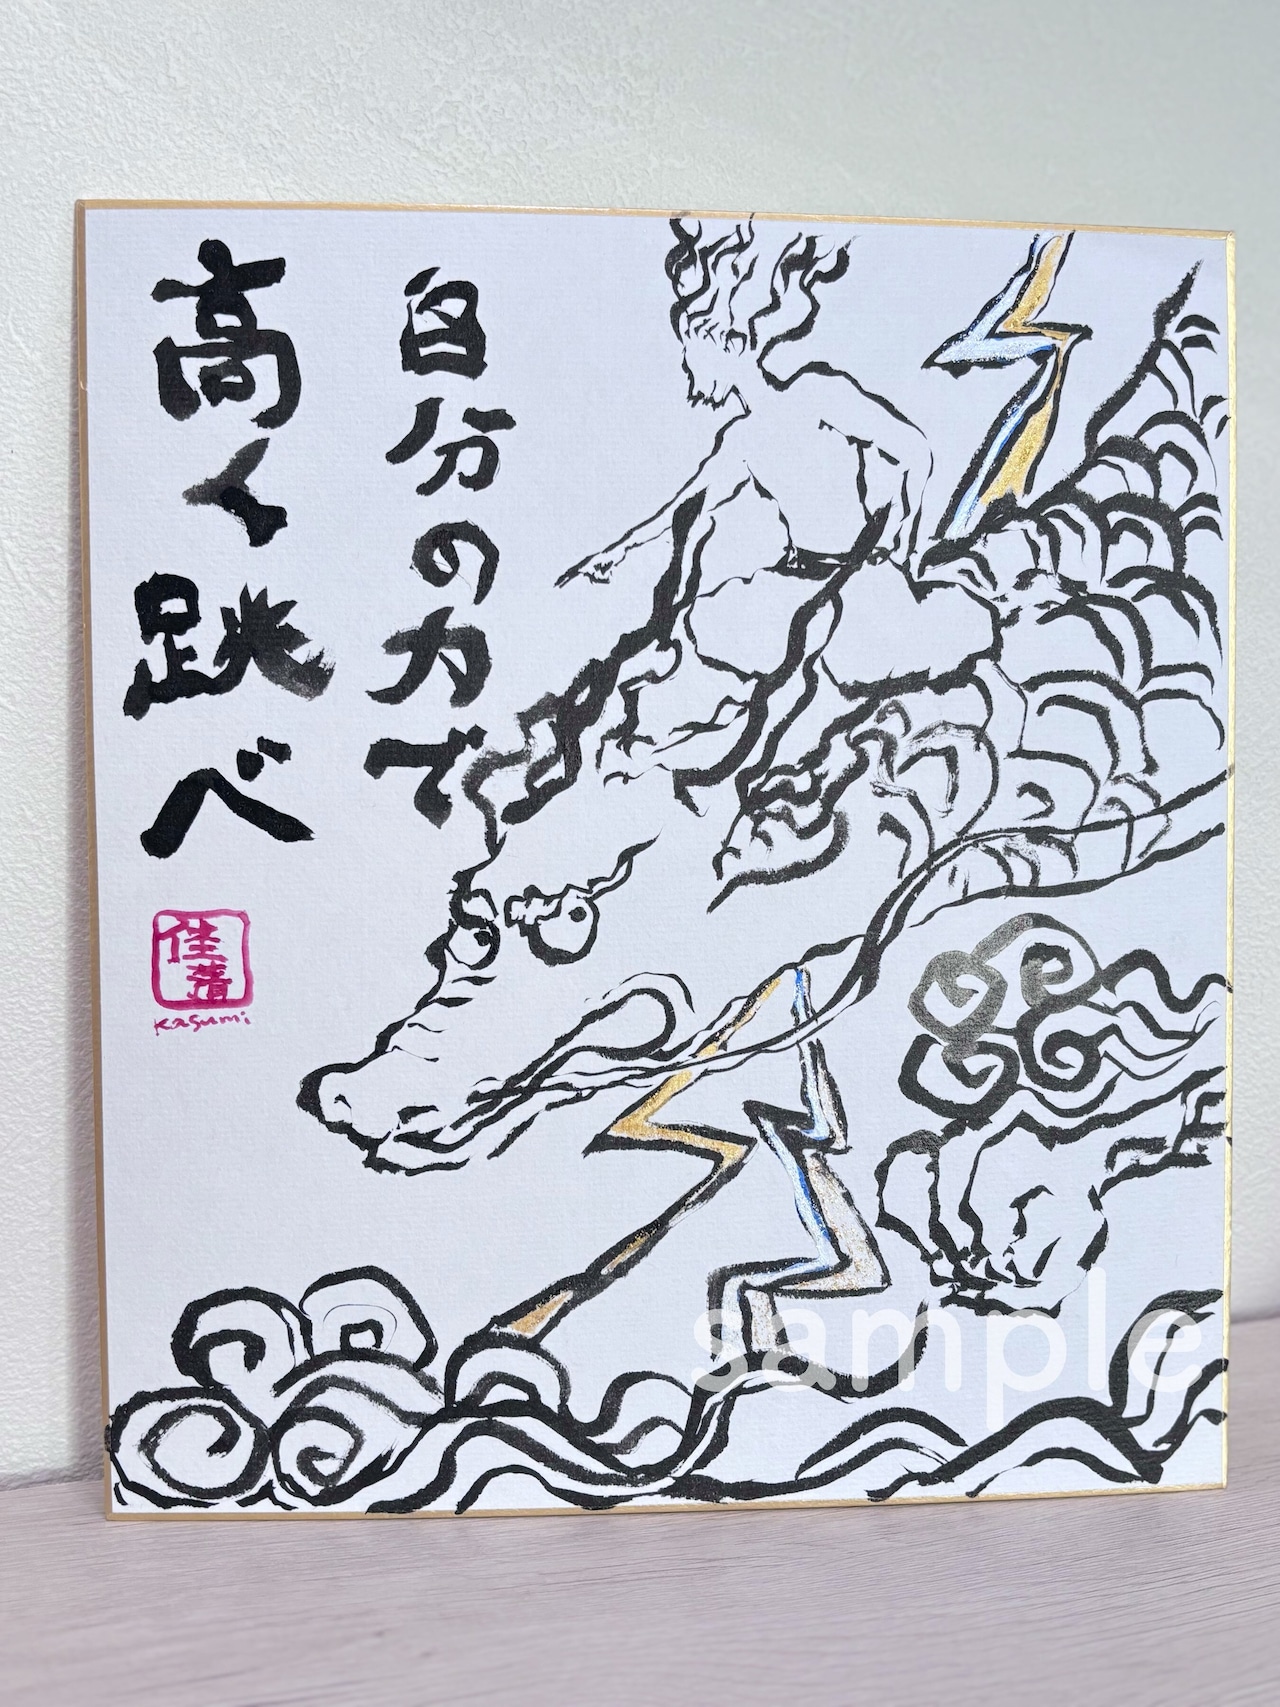 自分の力で
高く跳べ
佳蓿
Kasumi
sample